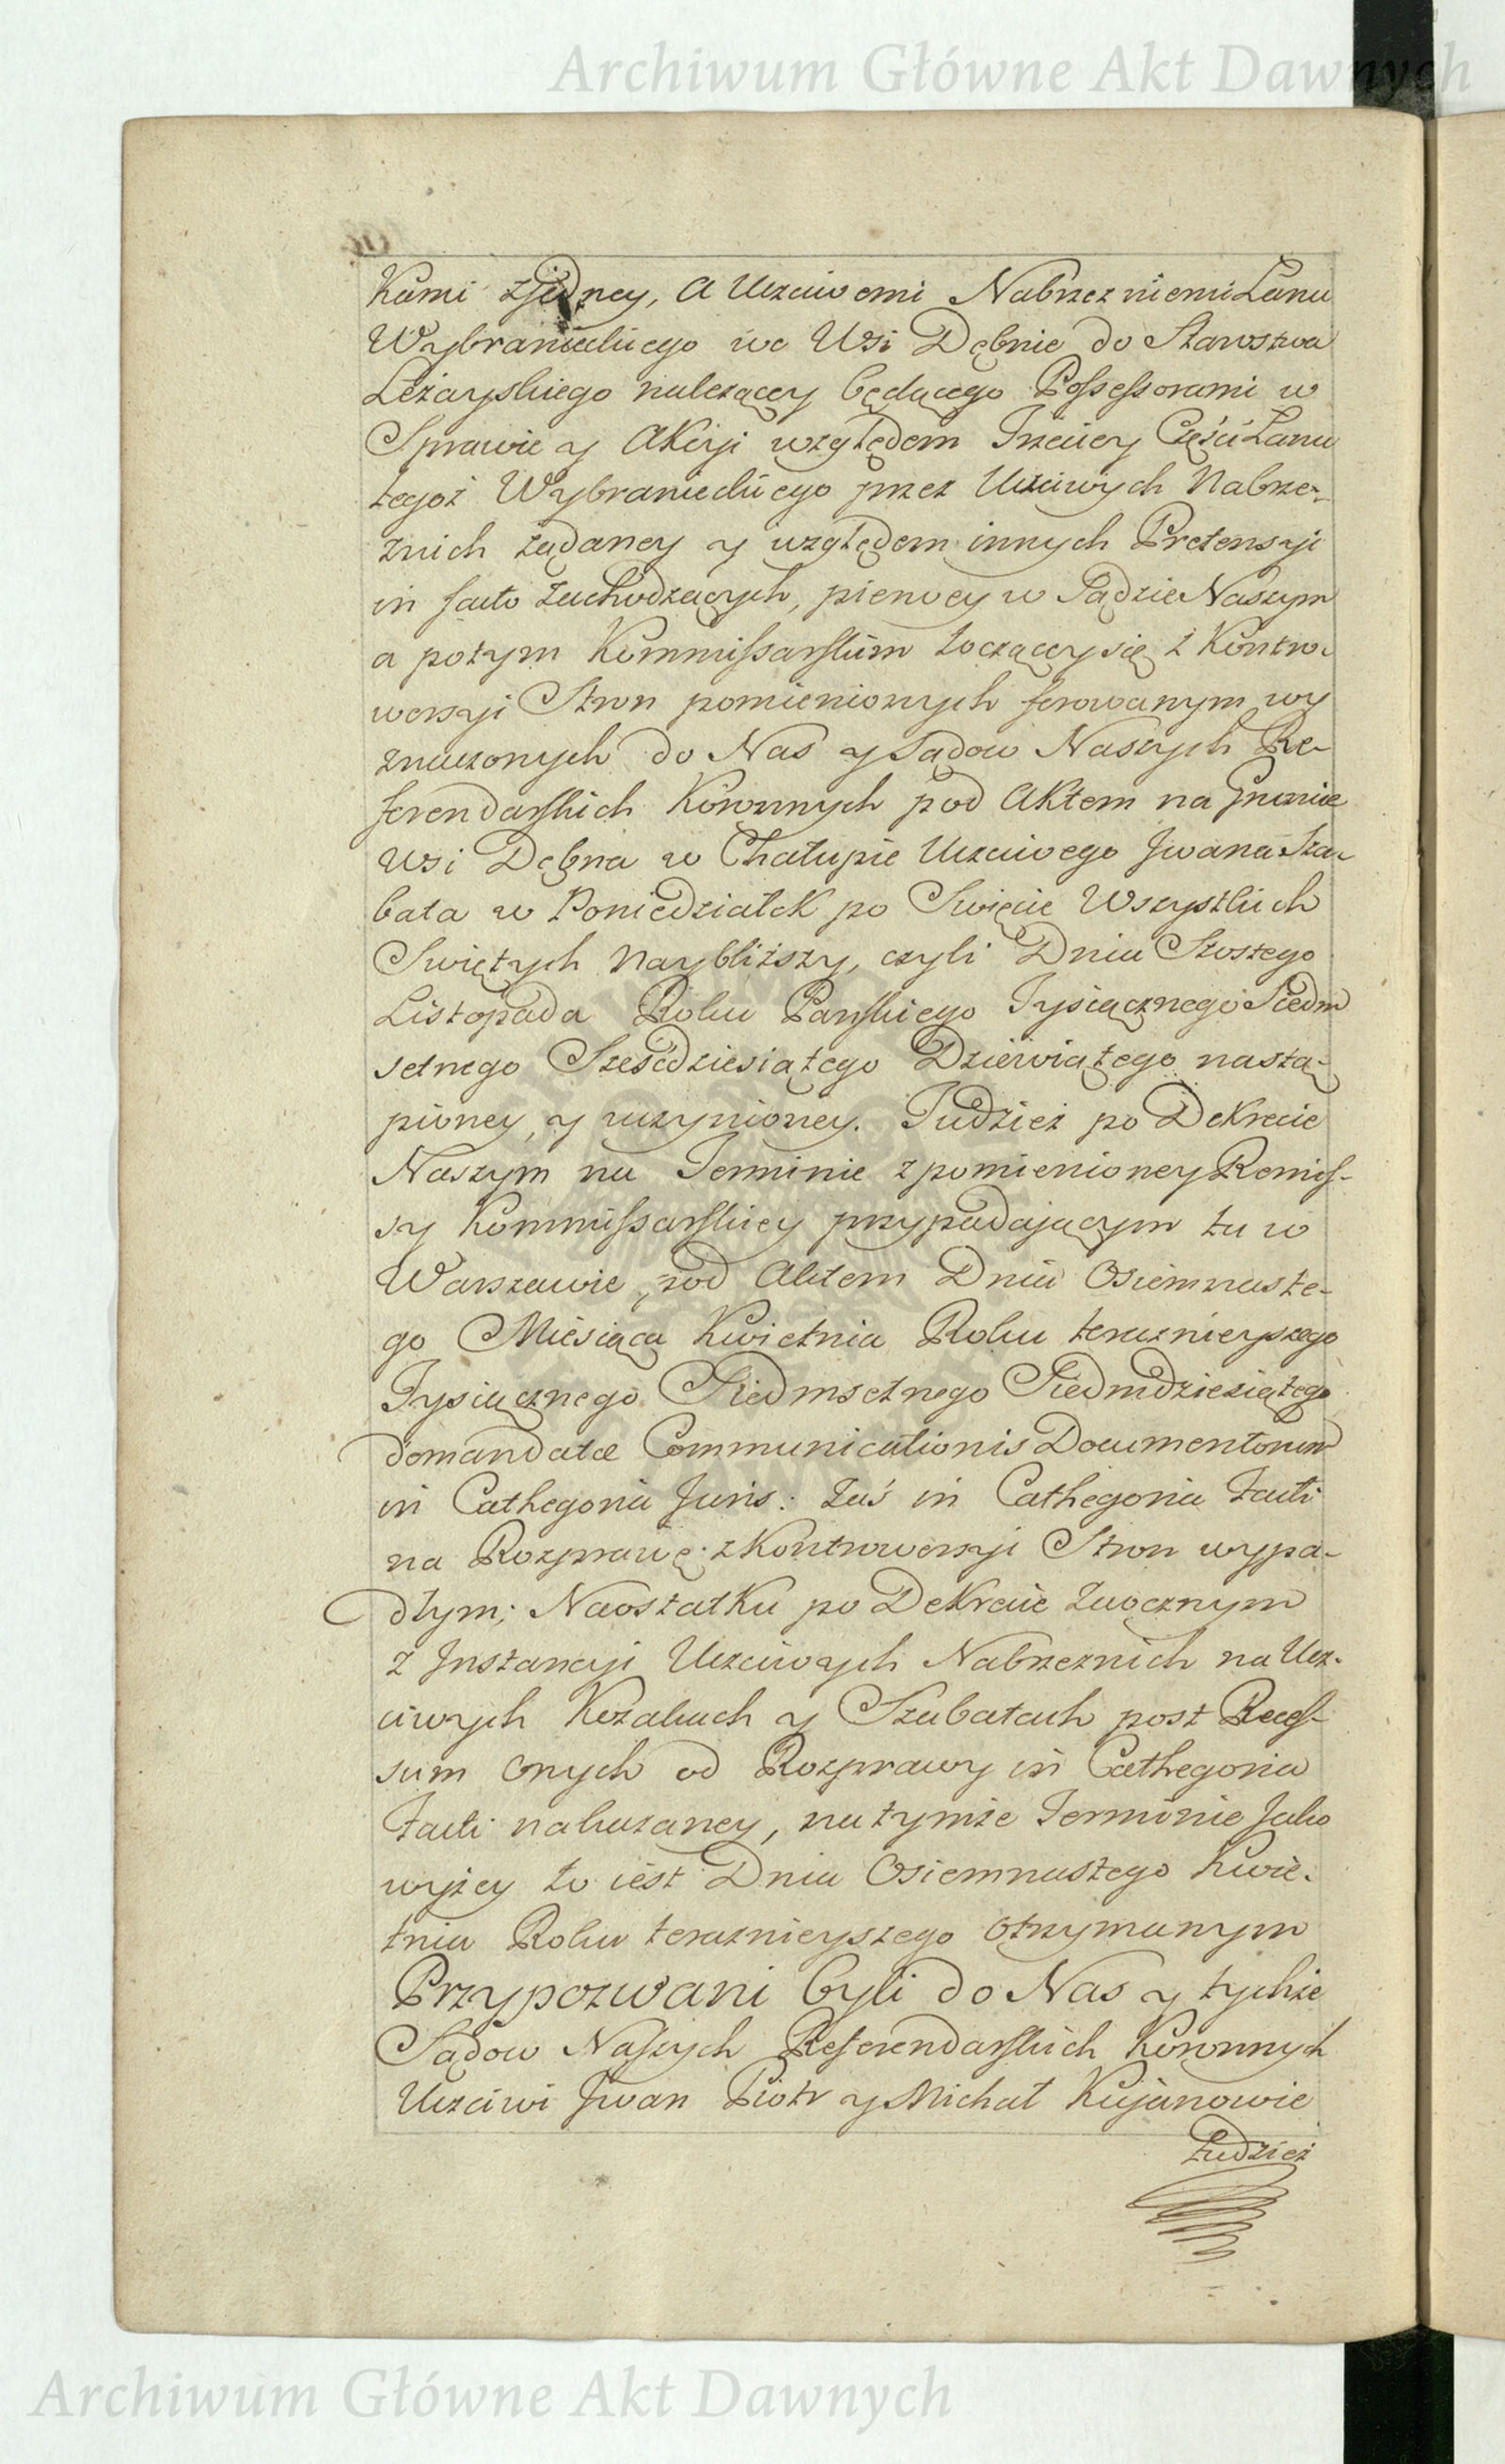 Archiwum Główne Akt Dawnych
kami z jedney, a Uczciwemi Nabrzezniemi Łanu
Wybranieckiego we Wsi Dębnie do Starostwa
Leżayskiego należącey będącego Possessorami w
Sprawie y Akcyi względem Trzeciey Części Łanu
tegoż Wybranieckiego przez Uczciwych Nabrze-
znich żądaney y względem innych Pretensyi
in facto zachodzących, pierwey w Sądzie Naszym
a potym Kommissarskim toczącey się z Kontro-
wersyi Stron pomienionych ferowanym wy
znaczonych do Nas y Sądow Naszych Re-
ferendarskich Koronnych pod Aktem na Gruncie
Wsi Dębna w Chałupie Uczciwego Jwana Sza-
bata w Poniedziałek po Swięcie Wszystkich
Swiętych naybliższy, czyli Dniu Szostego
Listopada Roku Panskiego Tysiącznego Siedm
setnego Sześćdziesiątego Dziewiątego nastą-
pioney, y uczynioney. Tudzież po Dekrecie
Naszym na Terminie z pomienioney Remis-
sy Kommissarskiey przypadającym tu w
Warszawie, pod Aktem Dnia Osiemnaste-
go Miesiąca Kwietnia Roku teraznieyszego
Tysiącznego Siedmsetnego Siedmdziesiątego
domandatæ Communicationis Documentorum
in Cathegoria Juris: zaś in Cathegoria Facti
na Rozprawę z Kontrowersyi Stron wypa-
dłym; Naostatku po Dekrecie Zaocznym
z Jnstancyi Uczciwych Nabrzeznich na Ucz-
ciwych Kozakach y Szabatach post Reces-
sum onych od Rozprawy in Cathegoria
Facti nakazaney, na tymże Terminie Jako
wyżey to iest Dnia Osiemnastego Kwie-
tnia Roku teraznieyszego otrzymanym
Przypozwani byli do Nas y tychże
Sądow Naszych Referendarskich Koronnych
Uczciwi Jwan Piotr y Michał Kujanowie
Tudzież
Archiwum Główne Akt Dawnych